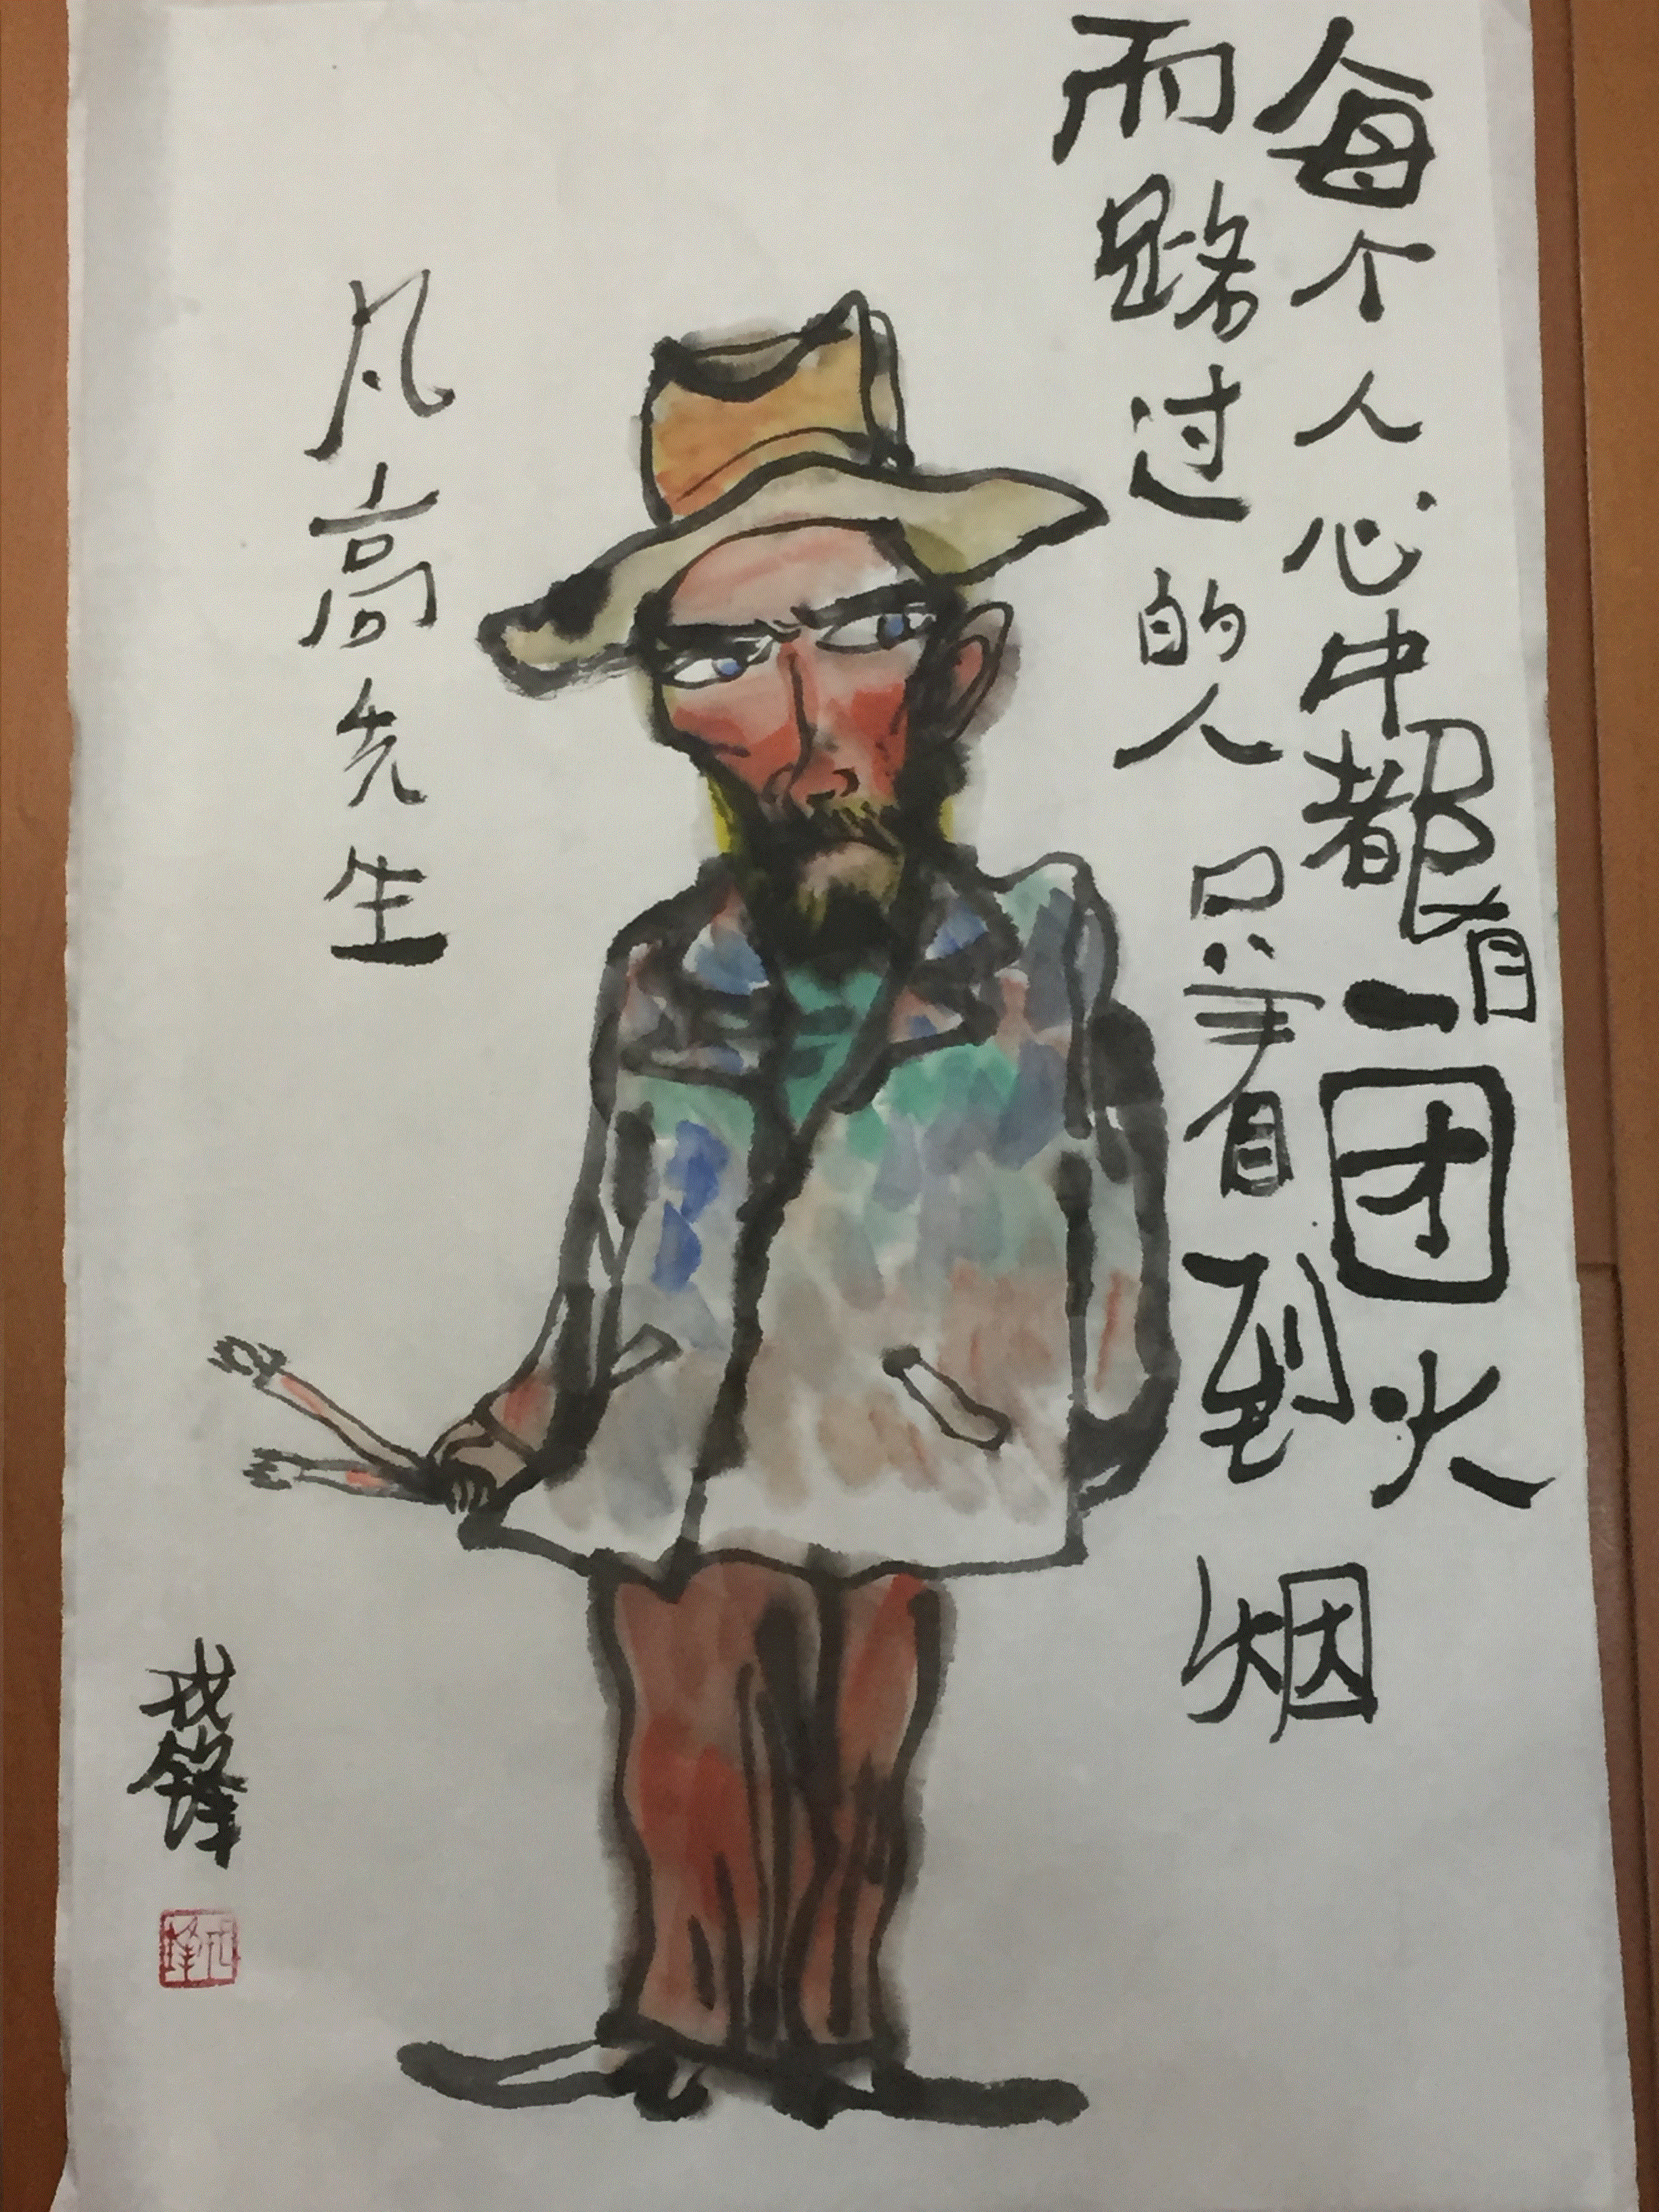 每个人心中都有一团火
而路过的人只看到烟
凡高先生
戎锋